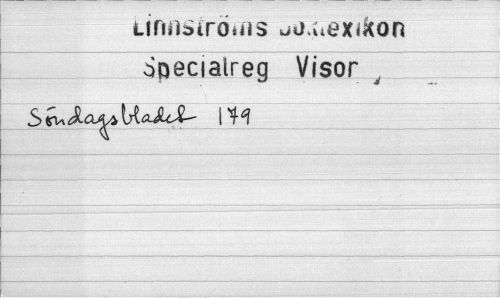 Linnströms Boklexikon
Specialreg Visor
Söndagsbladet 179